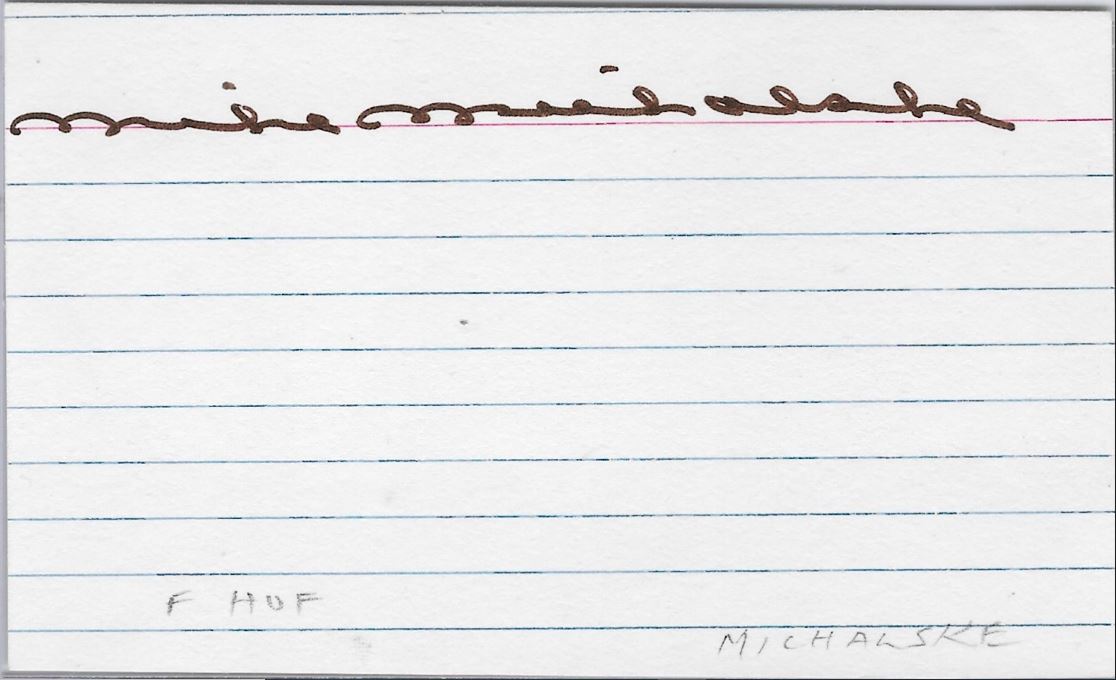 mike michalske
F HOF
MICHALSKE